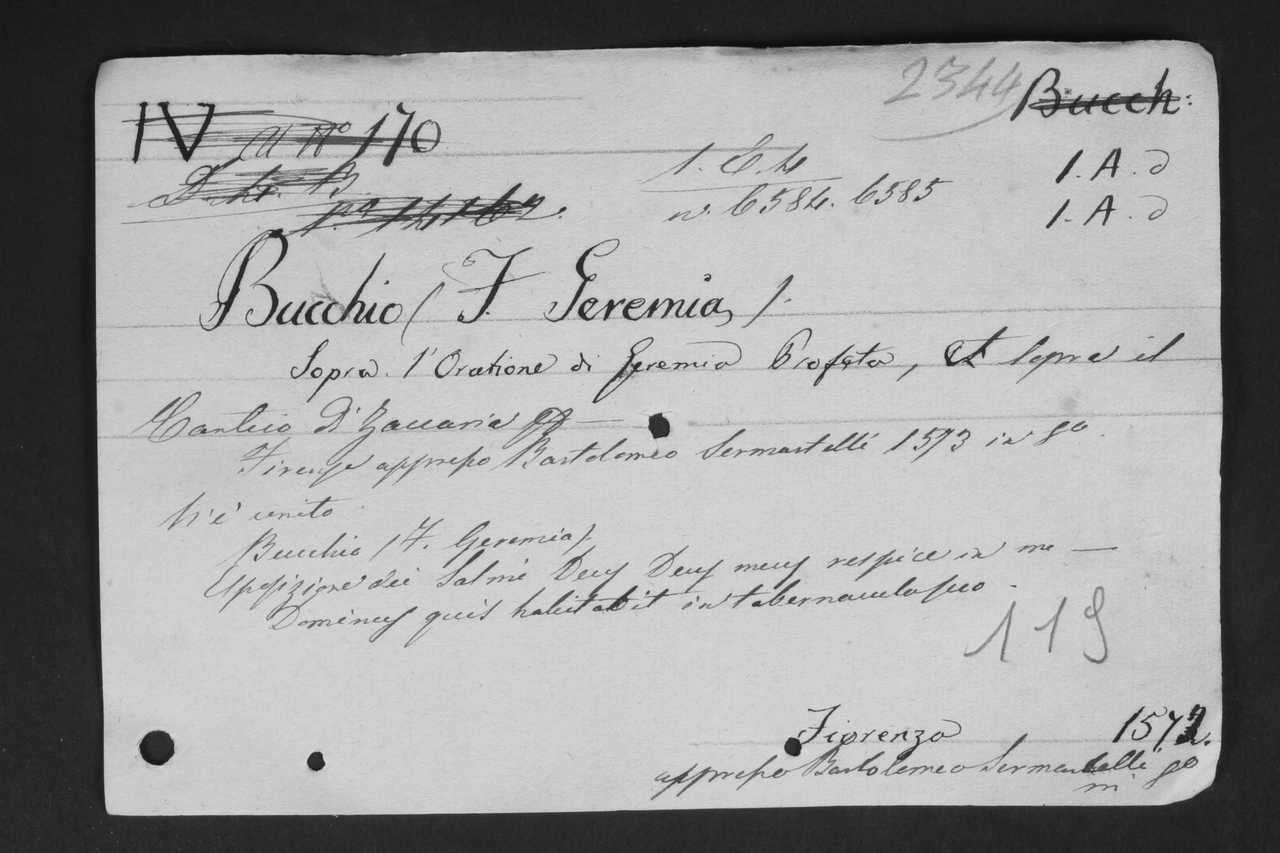 2344 Bucch:
IV 170
1. E. 4 1. A. d
n.° 6584. 6585 1. A. d
Bucchio (F. Geremia).
Sopra l'Oratione di Geremia Profeta, et sopra il
Cantico di Zaccaria —
Firenze appresso Bartolomeo Sermartelli 1573 in 8°.
V'è unito
Bucchio (F. Geremia).
Esposizione dei Salmi Deus Deus meus respice in me —
Dominus quis habitabit in tabernaculo suo.
119
Fiorenza 1572.
appresso Bartolomeo Sermartelli
in 8°